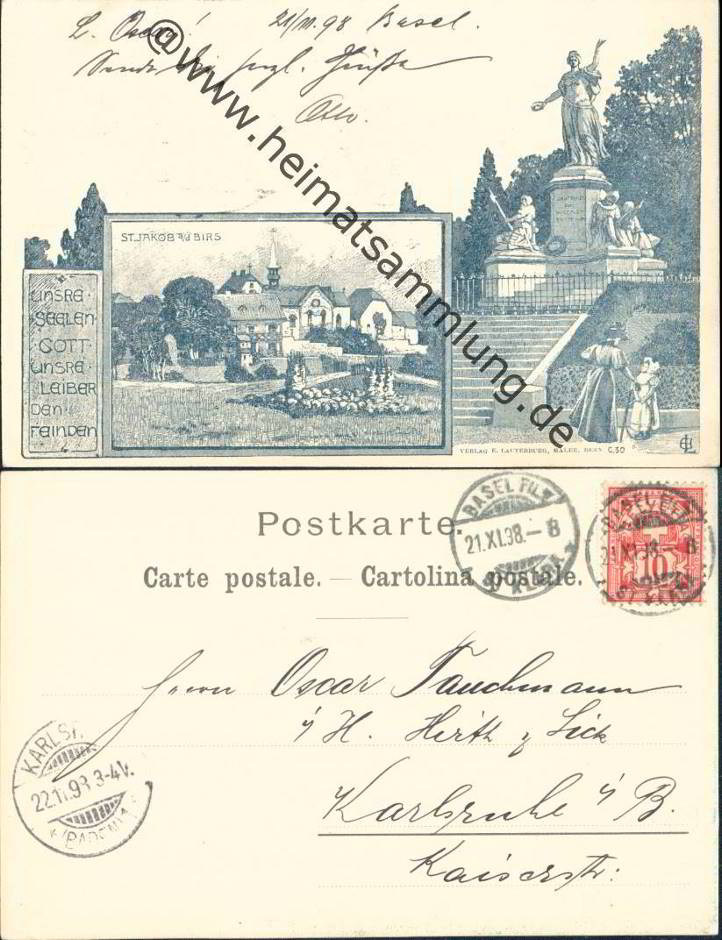 L. Oscar! 21/XI.98 Basel.
Sende dir herzl. Grüße
Otto.
@www.heimatsammlung.de
ST. JAKOB A/D BIRS
UNSRE
SEELEN
GOTT
UNSRE
LEIBER
DEN
FEINDEN
VERLAG E. LAUTERBURG, MALER, BERN C.50
Postkarte.
Carte postale. — Cartolina postale.
BASEL FIL.
21.XI.98.–8
ST. KLARA
10
21.XI.98.–8
Herrn Oscar Tauchmann
Karlsruhe i/B.
Kaiserstr:
KARLSR
22.11.98.3-4V.
(BADEN)